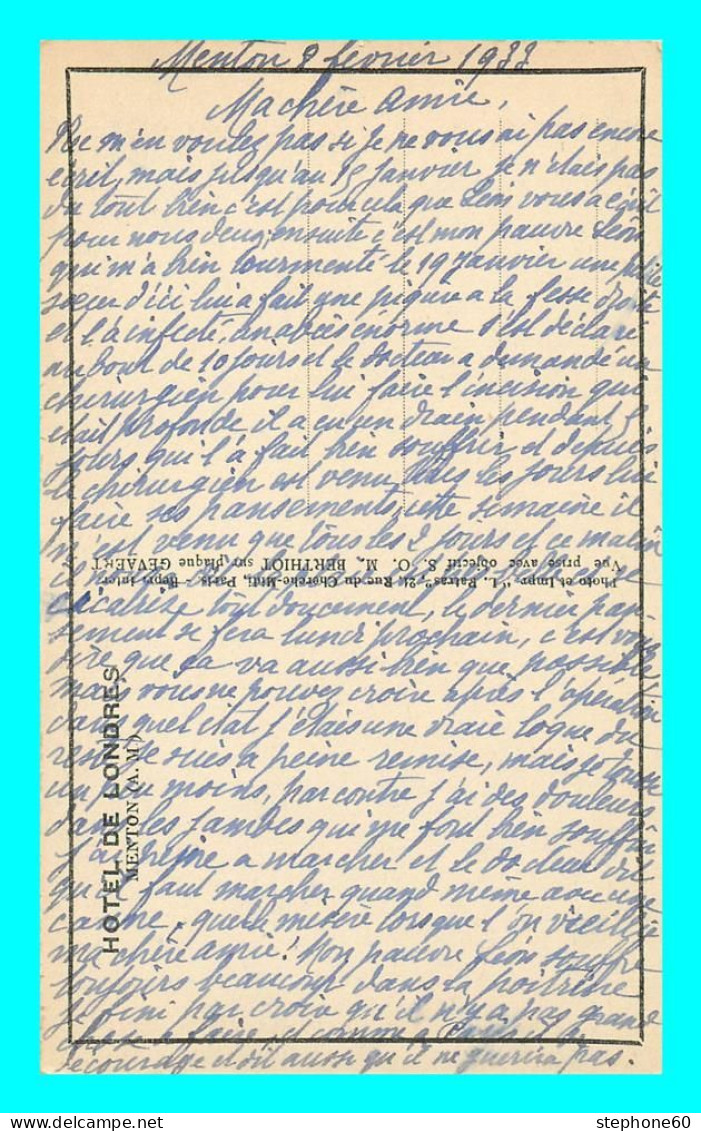 Menton 8 février 1933
Ma chère amie,
Ne m'en voulez pas si je ne vous ai pas encore
écrit, mais jusqu'au 15 Janvier je n'étais pas
du tout bien c'est pour cela que Léon vous a écrit
pour nous deux, ensuite c'est mon pauvre Léon
qui m'a bien tourmenté le 19 Janvier une petite
soeur d'ici lui a fait une piqure a la fesse droite
et l'a infecté, un abcès énorme s'est déclaré
au bout de 10 jours et le docteur a demandé un
chirurgien pour lui faire l'incision qui
était profonde il a eu un drain pendant 5
jours qui l'a fait bien souffrir et depuis
le chirurgien est venu tous les jours lui
faire ses pansements, cette semaine il
n'est venu que tous les 2 jours et ce matin
Photo et Impr. "L. Patras", 21, Rue du Cherche-Midi, Paris. - Repr. inter.
Vue prise avec objectif S. O. M. BERTHIOT sur plaque GEVAERT
tout doucement, le dernier pan-
sement se fera lundi prochain, c'est vous
dire que ça va aussi bien que possible
mais vous ne pouvez croire après l'opération
dans quel état j'étais une vraie loque du
reste je suis a peine remise, mais je tousse
un peu moins, par contre j'ai des douleurs
dans les jambes qui me font bien souffrir
j'ai peine a marcher et le docteur dit
qu'il faut marcher quand même avec une
canne, quelle misère lorsque l'on vieillit
ma chère amie! Mon pauvre Léon souffre
toujours beaucoup dans la poitrine
je fini par croire qu'il n'y a pas grand
chose a faire, et comme a Paris il se
décourage et dit aussi qu'il ne guérira pas.
HOTEL DE LONDRES
MENTON (A. M.)
stephone60